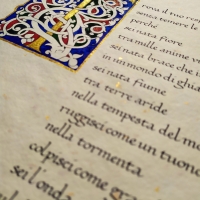 senza temere l
perché
sei nata fiore
tra mille anime
sei nata brace che
in un mondo di
sei nata fiume
tra terre aride
nella tempesta del
ruggisci come un tuono
nella tormenta
colpisci come
sei l'onda